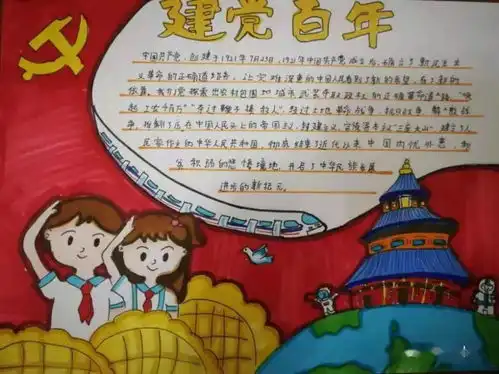 建党百年
中国共产党,创建于1921年7月23日,1921年中国共产党成立后,确立了新民主主
义革命的正确道路,让灾难深重的中国人民看到了新的希望,有了新的
依靠。我们党探索出农村包围城市武装夺取政权的正确革命道路,唤
起工农千百万
经过土地革命战争,抗日战争,解放战
争,推翻了压在中国人民头上的帝国主义,封建主义,官僚资本主义三座大山,建立了人
民当家作主的中华人民共和国,彻底结束了近代以来中国内忧外患,积
贫积弱的悲惨境地,开启了中华民族发展
进步的新纪元。